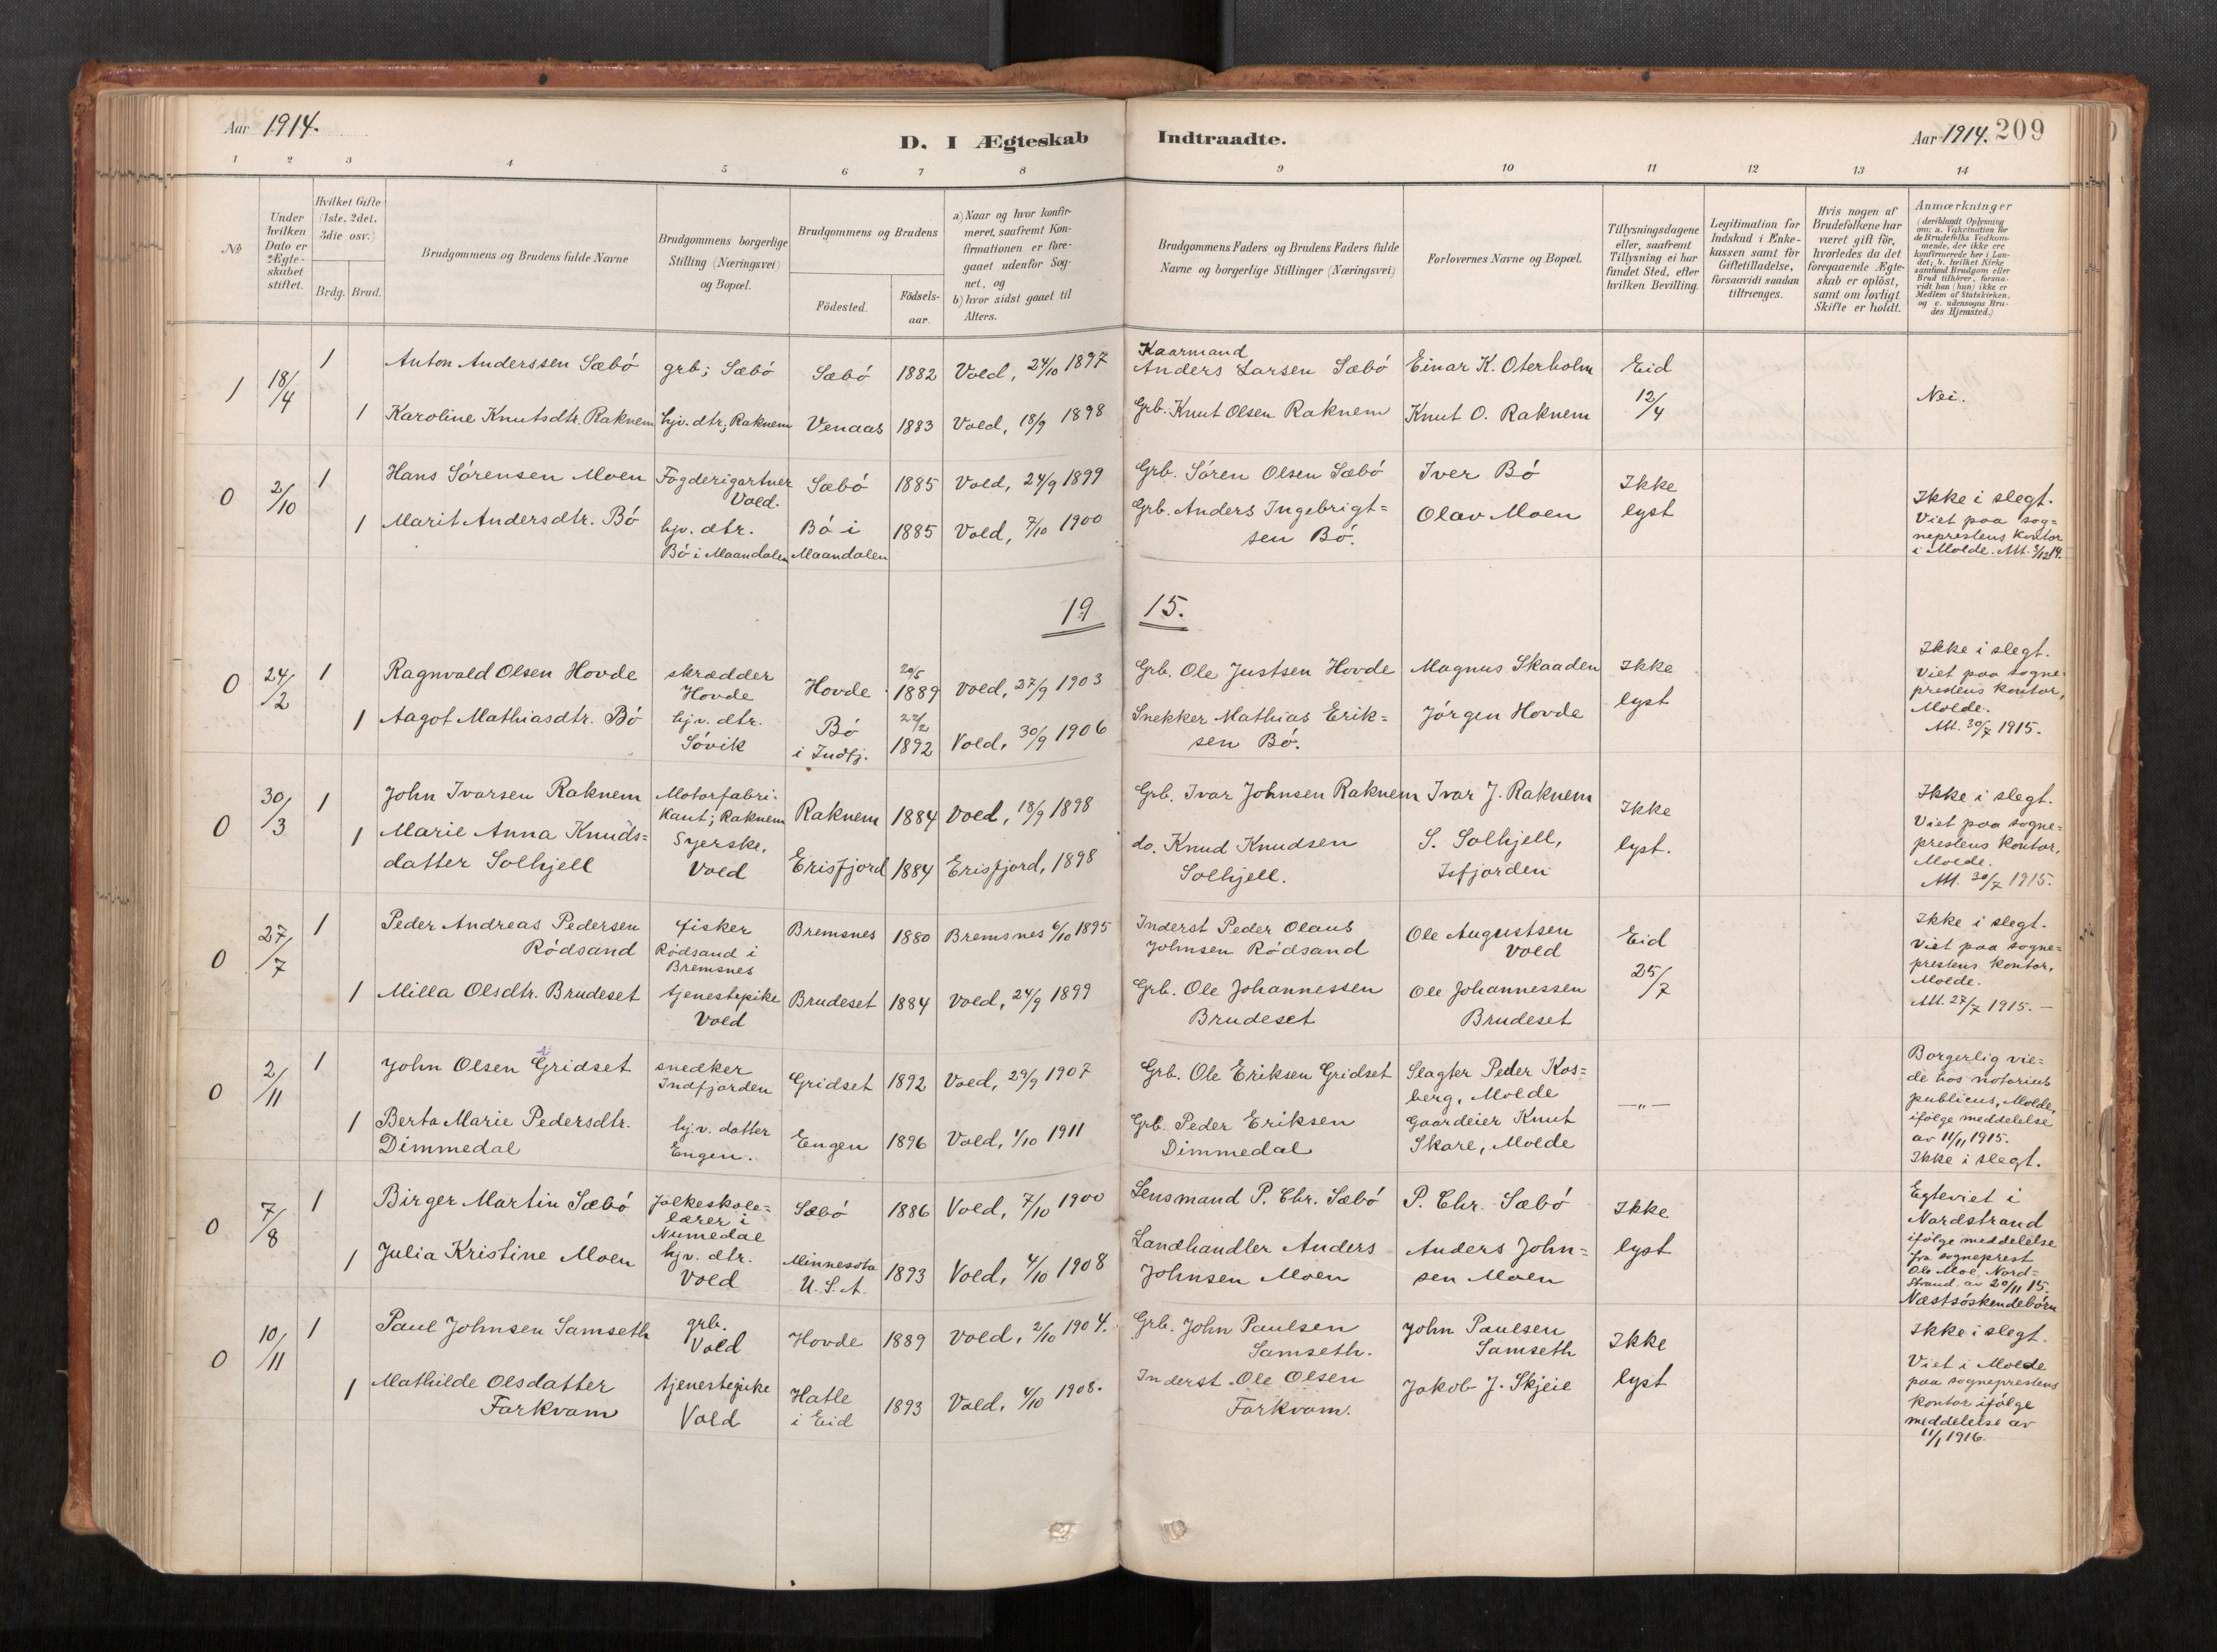 Aar 1914.
D. I Ægteskab Indtraadte.
Aar 1914. 209
1 2 3 4 5 6 7 8 9 10 11 12 13 14
No
Under hvilken Dato er Ægteskabet stiftet.
Hvilket Gifte (1ste, 2det, 3die osv.)
Brdg. Brud.
Brudgommens og Brudens fulde Navne
Brudgommens borgerlige Stilling (Næringsvei) og Bopæl.
Brudgommens og Brudens
Födested.
Födsels-aar.
a) Naar og hvor konfirmeret, saafremt Konfirmationen er foregaaet udenfor Sognet, og
b) hvor sidst gaaet til Alters.
Brudgommens Faders og Brudens Faders fulde Navne og borgerlige Stillinger (Næringsvei)
Forlovernes Navne og Bopæl.
Tillysningsdagene eller, saafremt Tillysning ei har fundet Sted, efter hvilken Bevilling.
Legitimation for Indskud i Enkekassen samt for Giftetilladelse, forsaavidt saadan tiltrænges.
Hvis nogen af Brudefolkene har været gift för, hvorledes da det foregaaende Ægteskab er oplöst, samt om lovligt Skifte er holdt.
Anmærkninger
(deriblandt Oplysning om: a. Vakcination for de Brudefolks Vedkommende, der ikke ere konfirmerede her i Landet; b. hvilket Kirkesamfund Brudgom eller Brud tilhörer, forsaavidt han (hun) ikke er Medlem af Statskirken, og c. udensogns Brudes Hjemsted.)
1 18/4 1 Anton Anderssen Sæbó grb; Sæbó Sæbó 1882 Vold, 24/10 1897 Kaarmand Anders Larsen Sæbó Einar K. Oterholm Eid 12/4 Nei.
1 Karoline Knutsdtr. Raknem hjv. dtr; Raknem Venaas 1883 Vold, 18/9 1898 Grb. Knut Olsen Raknem Knut O. Raknem
0 2/10 1 Hans Sórensen Moen Fogderigartner Vold. Sæbó 1885 Vold, 24/9 1899 Grb. Sóren Olsen Sæbó Iver Bó Ikke lyst
1 Marit Andersdtr. Bó hjv. dtr. Bó i Maandalen Bó i Maandalen 1885 Vold, 7/10 1900 Grb. Anders Ingebrigt=sen Bó. Olav Moen
Ikke i slegt.
Viet paa sog=
neprestens kontor
i Molde. Att. 3/12 14.
19 15.
0 24/2 1 Ragnvald Olsen Hovde skrædder Hovde Hovde 20/5 1889 Vold, 27/9 1903 Grb. Ole Justsen Hovde Magnus Skaaden Ikke lyst
1 Aagot Mathiasdtr. Bó hjv. dtr. Sóvik Bó i Indfj. 22/2 1892 Vold, 30/9 1906 Snekker Mathias Erik=sen Bó. Jórgen Hovde
Ikke i slegt.
Viet paa sogne=
prestens kontor,
Molde.
Att. 30/7 1915.
0 30/3 1 John Ivarsen Raknem Motorfabri-kant; Raknem Raknem 1884 Vold, 18/9 1898 Grb. Ivar Johnsen Raknem Ivar J. Raknem Ikke lyst.
1 Marie Anna Knuds=datter Solhjell Syerske, Vold Erisfjord 1884 Erisfjord, 1898 do. Knud Knudsen Solhjell. S. Solhjell, Isfjorden
Ikke i slegt.
Viet paa sogne=
prestens kontor,
Molde.
Att. 30/7 1915.
0 27/7 1 Peder Andreas PedersenRódsand fisker Ródsand i Bremsnes Bremsnes 1880 Bremsnes 6/10 1895 Inderst Peder Olaus Johnsen Ródsand Ole Augustsen Vold Eid 25/7
1 Milla Olsdtr. Brudeset tjenestepike Vold Brudeset 1884 Vold, 24/9 1899 Grb. Ole Johannessen Brudeset Ole Johannessen Brudeset
Ikke i slegt.
Viet paa sogne=
prestens kontor,
Molde.
Att. 27/7 1915. —
0 2/11 1 John Olsen Gridset snedker Indfjorden Gridset 1892 Vold, 29/9 1907 Grb. Ole Eriksen Gridset Slagter Peder Kos=berg, Molde —„—
1 Berta Marie Pedersdtr. Dimmedal hjv. datter Engen. Engen 1896 Vold, 1/10 1911 Grb. Peder Eriksen Dimmedal Gaardeier Knut Skare, Molde
Borgerlig vie=
de hos notarius
publicus, Molde,
ifólge meddelelse
av 11/11 1915.
Ikke i slegt.
0 7/8 1 Birger Martin Sæbó Folkeskole=lærer i Numedal Sæbó 1886 Vold, 7/10 1900 Lensmand P. Chr. Sæbó P. Chr. Sæbó Ikke lyst
1 Julia Kristine Moen hjv. dtr. Vold Minnesota U.S.A. 1893 Vold, 4/10 1908 Landhandler Anders Johnsen Moen Anders John=sen Moen
Egteviet i
Nordstrand
ifólge meddelelse
fra sogneprest
Ole Moe, Nord=
strand. av 20/11 15.
Næstsóskendebórn
0 10/11 1 Paul Johnsen Samseth grb. Vold Hovde 1889 Vold, 2/10 1904. Grb. John Paulsen Samseth. John Paulsen Samseth Ikke lyst
1 Mathilde Olsdatter Farkvam tjenestepike Vold Hatle i Eid 1893 Vold, 4/10 1908. Inderst Ole Olsen Farkvam. Jakob J. Skjeie
Ikke i slegt.
Viet i Molde
paa sogneprestens
kontor ifólge
meddelelse av
11/1 1916.